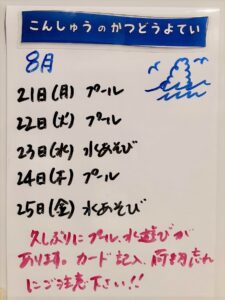 こんしゅうのかつどうよてい
8月
21日(月) プール
22日(火) プール
23日(水) 水あそび
24日(木) プール
25日(金) 水あそび
久しぶりにプール、水遊びが
あります。カード記入、荷物忘れ
にご注意下さい!!